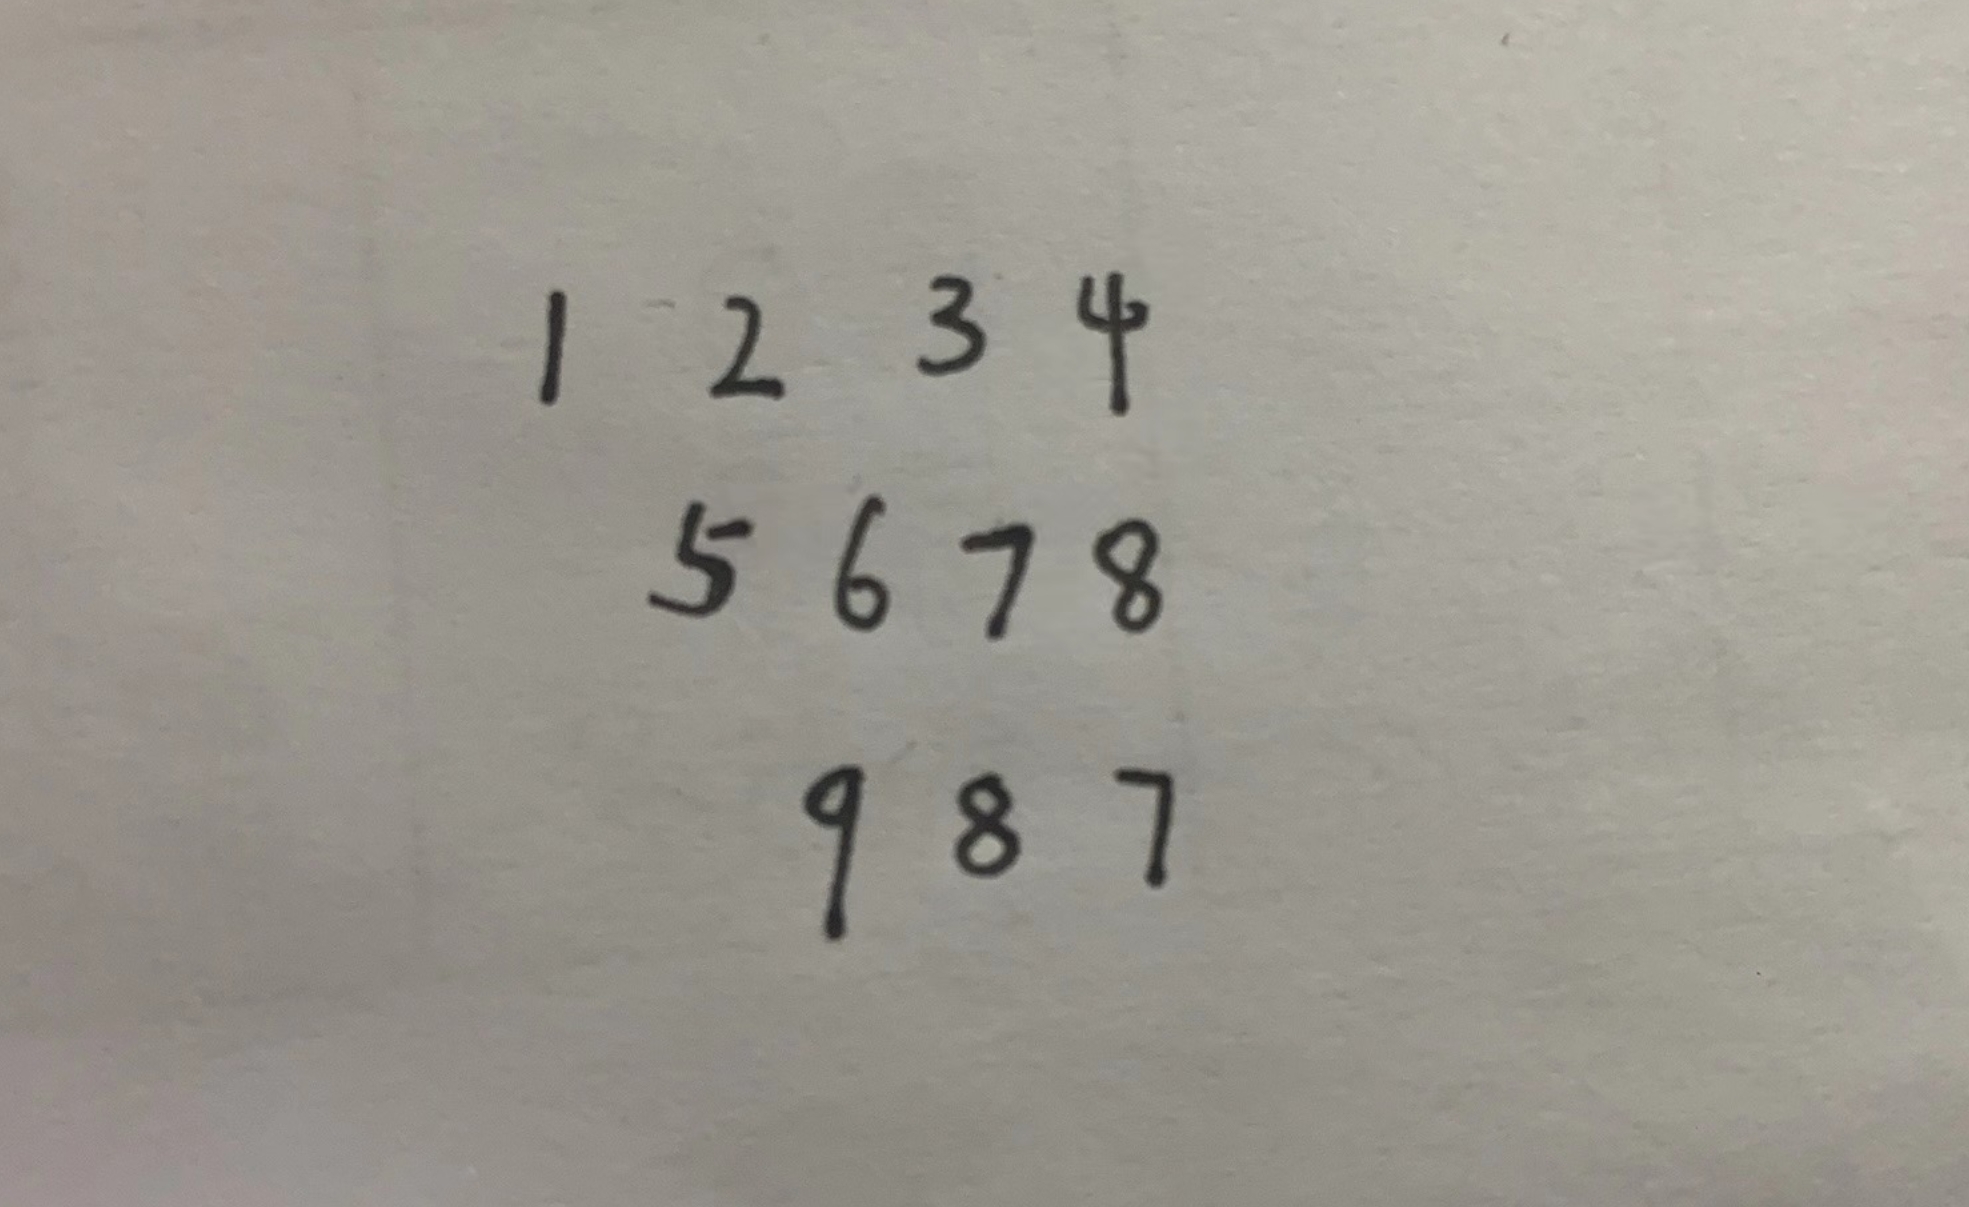 1 2 3 4
5 6 7 8
9 8 7